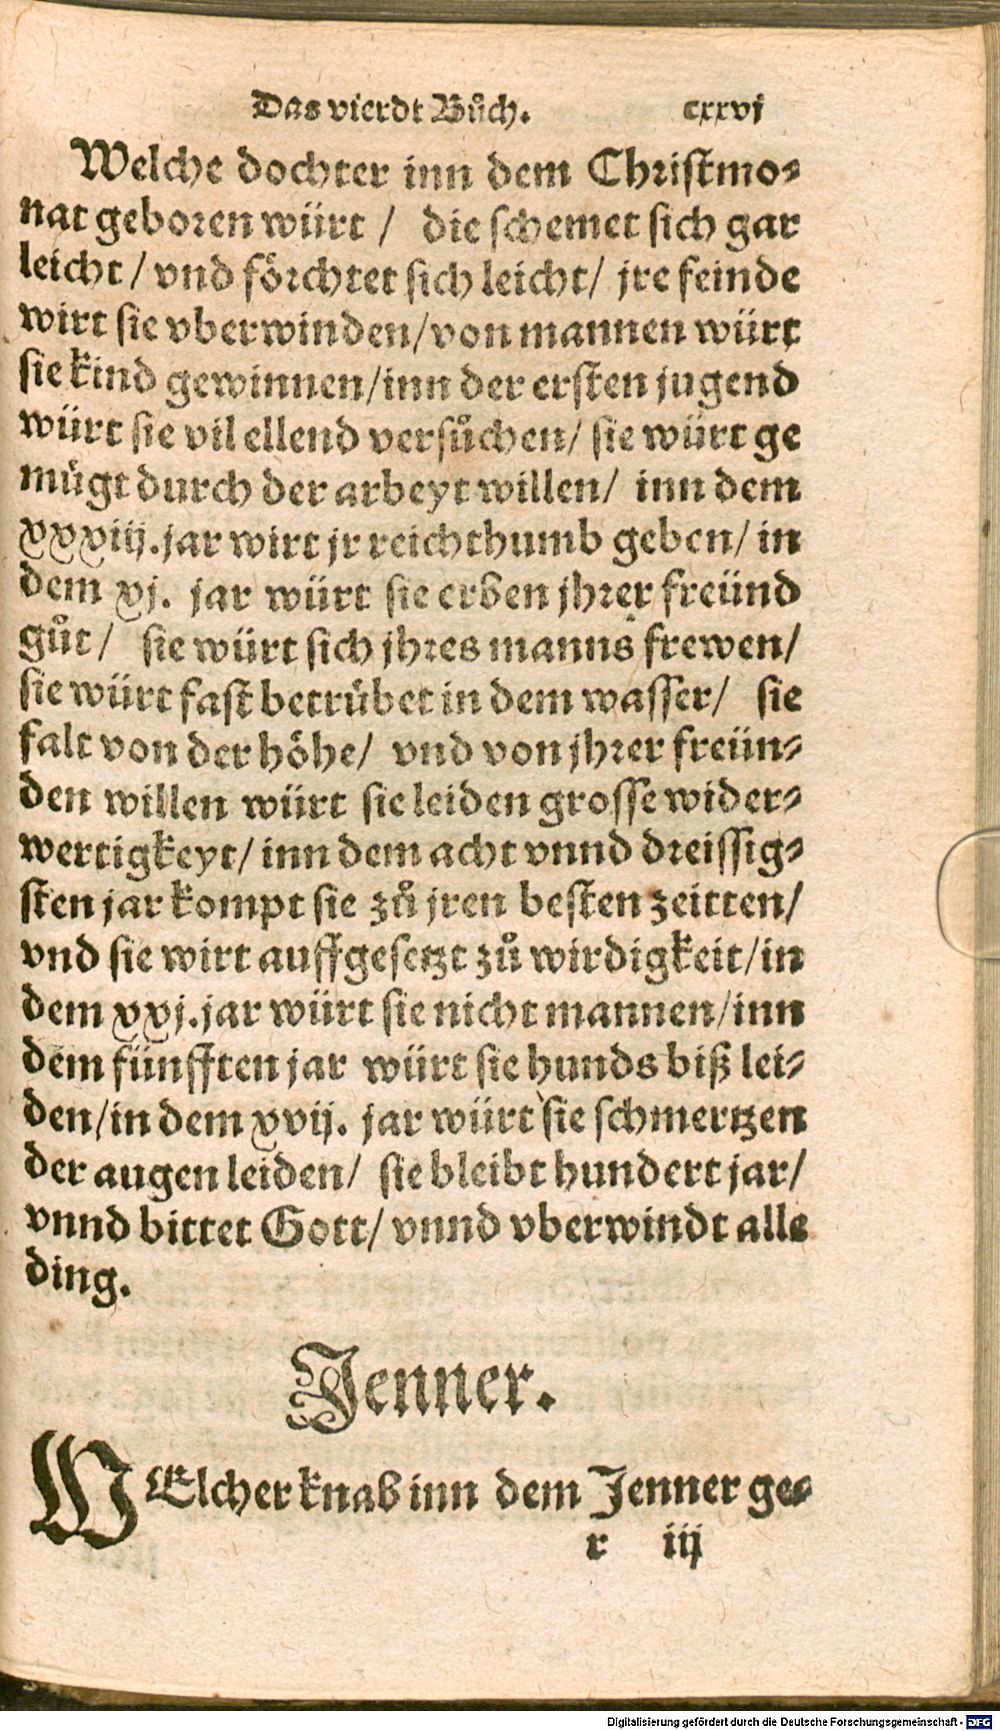 Das vierdt Bůch. cxxvj
Welche dochter inn dem Christmo⸗
nat geboren würt / die schemet sich gar
leicht / vnd förchtet sich leicht / jre feinde
wirt sie vberwinden / von mannen würt
sie kind gewinnen / inn der ersten jugend
würt sie vil ellend versůchen / sie würt ge
mügt durch der arbeyt willen / inn dem
xxxiij. jar wirt jr reichthumb geben / in
dem xj. jar würt sie erben jhrer freünd
gůt / sie würt sich jhres manns frewen /
sie würt fast betrübet in dem wasser / sie
falt von der höhe / vnd von jhrer freün⸗
den willen würt sie leiden grosse wider⸗
wertigkeyt / inn dem acht vnnd dreissig⸗
sten jar kompt sie zů jren besten zeitten /
vnd sie wirt auffgesetzt zů wirdigkeit / in
dem xxj. jar würt sie nicht mannen / inn
dem fünfften jar würt sie hunds biß lei⸗
den / in dem xvij. jar würt sie schmertzen
der augen leiden / sie bleibt hundert jar /
vnnd bittet Gott / vnnd vberwindt alle
ding.
Jenner.
WElcher knab inn dem Jenner ge⸗
r iij
Digitalisierung gefördert durch die Deutsche Forschungsgemeinschaft - DFG